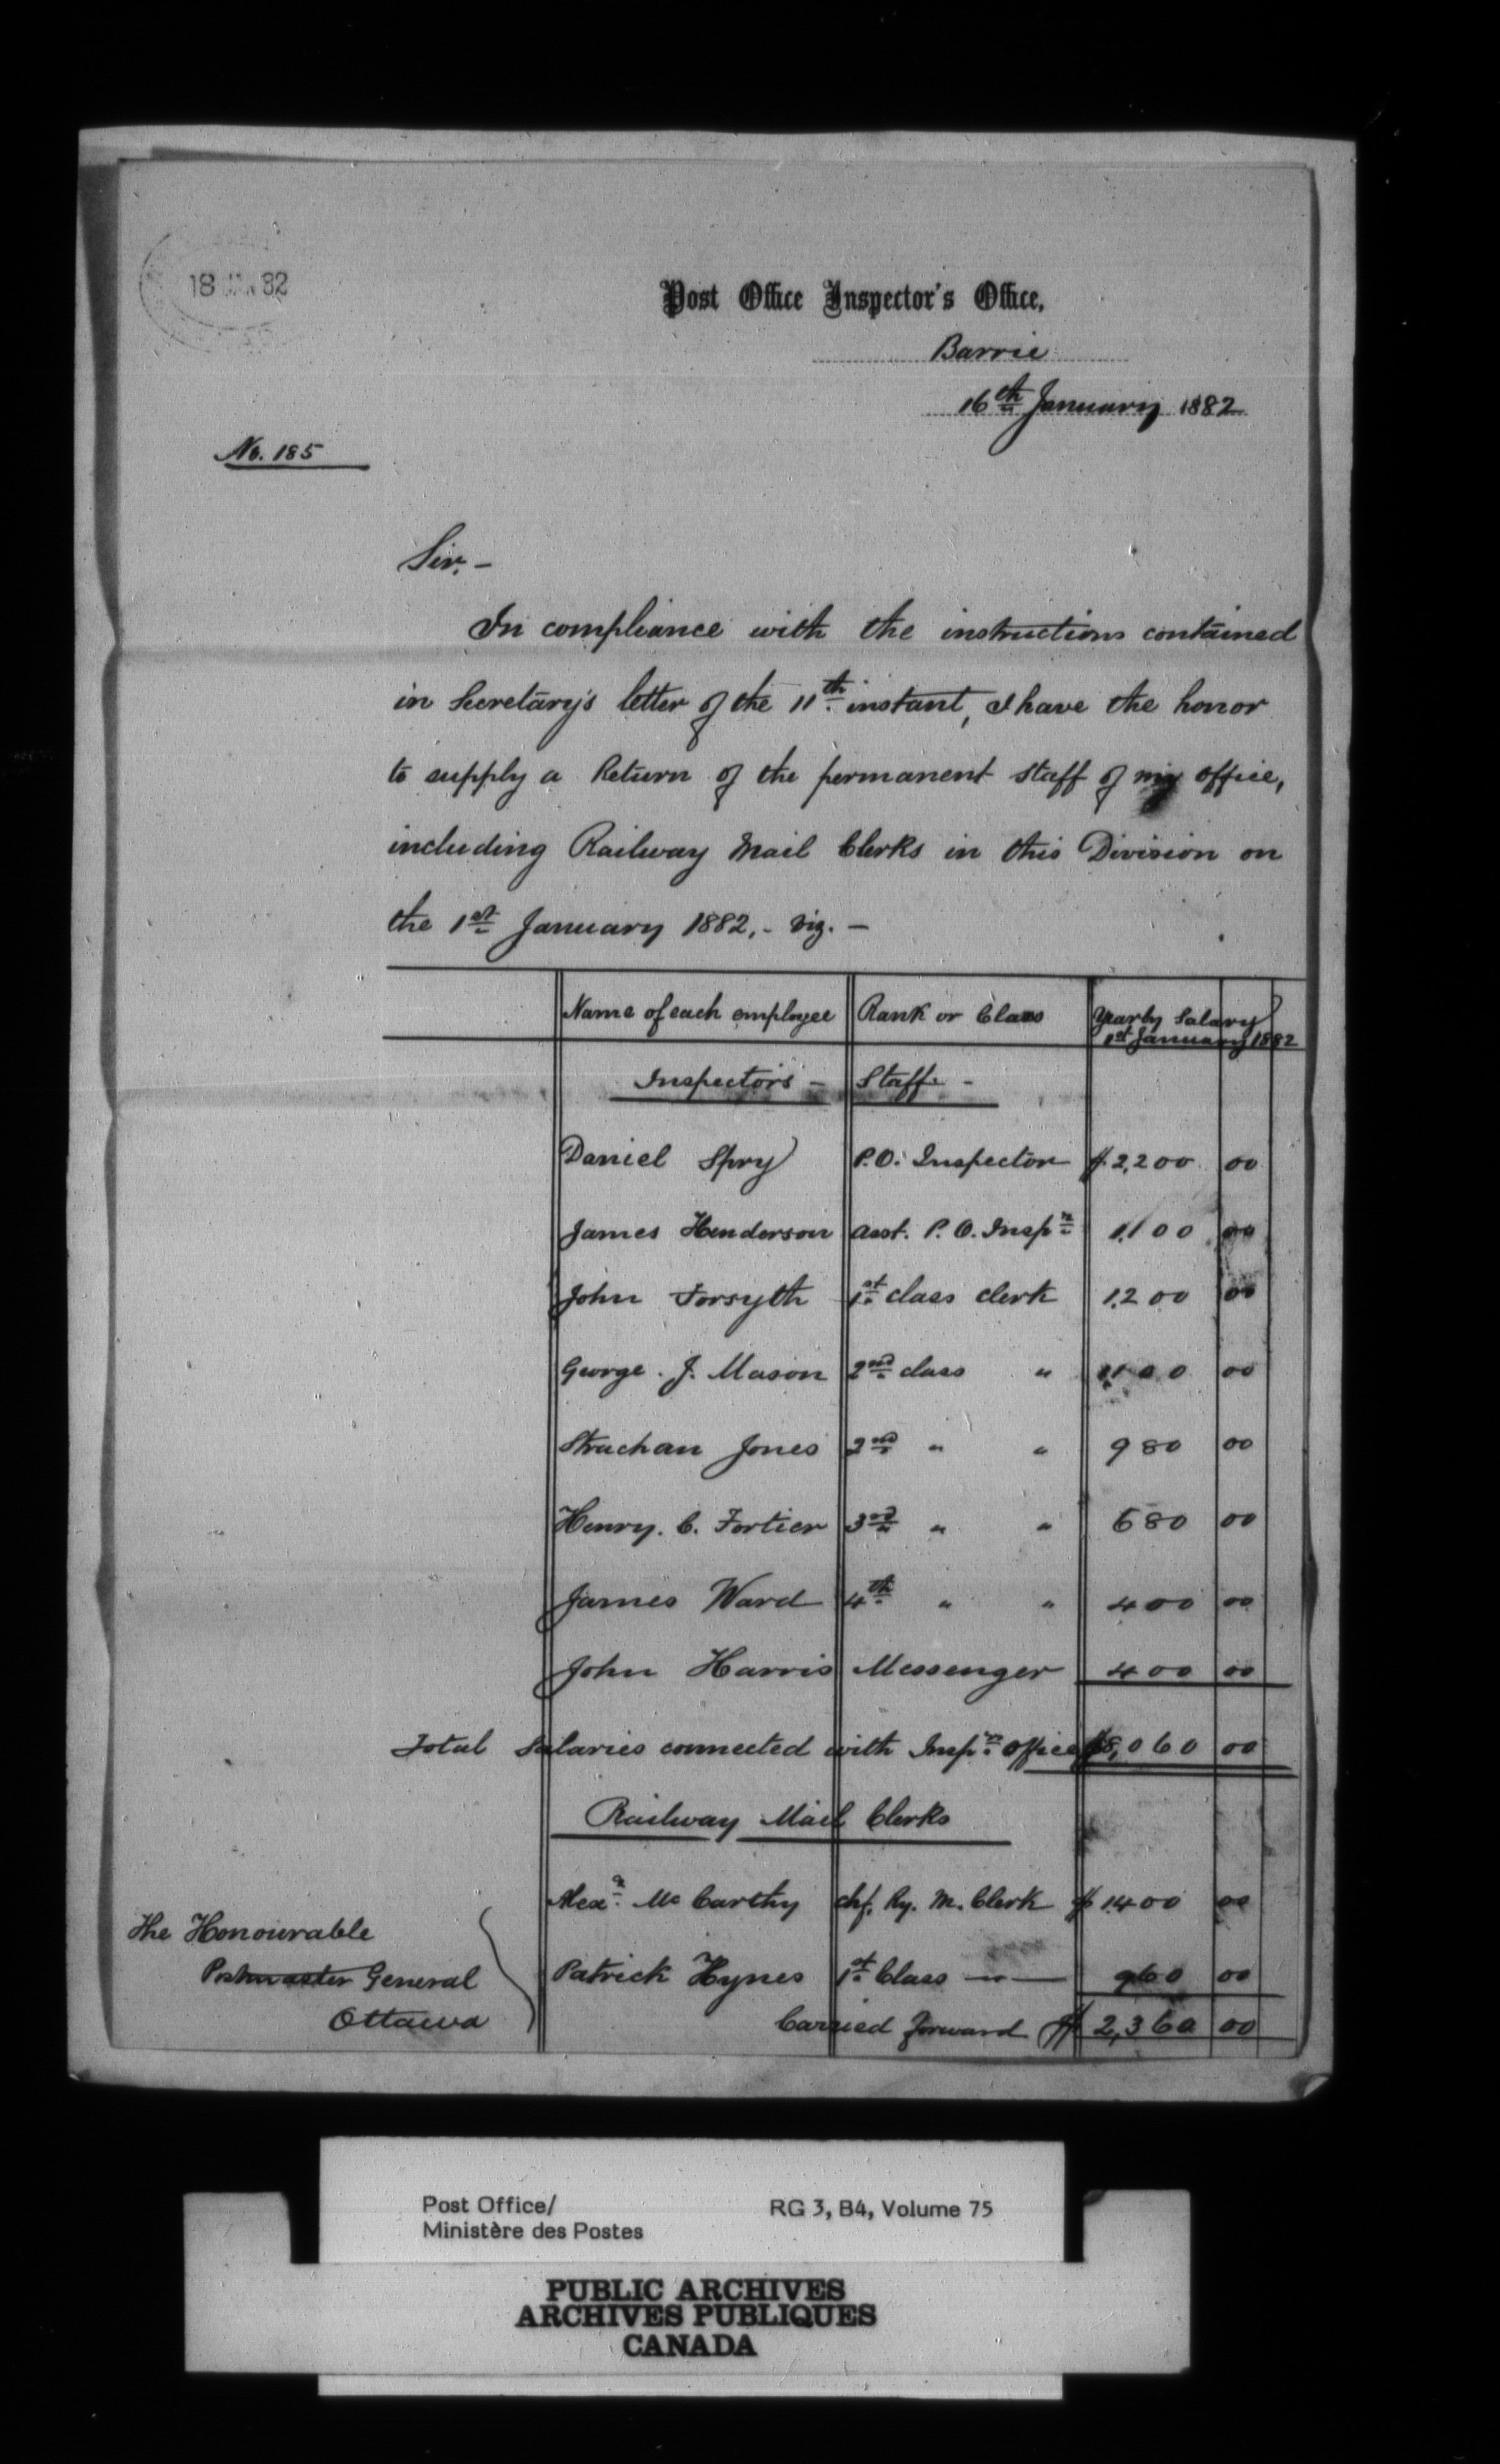 18 JAN 82
Post Office Inspector's Office,
Barrie
16th January 1882
No. 185
Sir,-
In compliance with the instructions contained
in Secretary's letter of the 11th instant, I have the honor
to supply a Return of the permanent staff of my office,
including Railway Mail Clerks in this Division on
the 1st January 1882,- viz. -
Name of each employee Rank or Class Yearly Salary 1st January 1882
Inspectors - Staff. -
Daniel Spry P.O. Inspector $2,200 00
James Henderson Asst. P. O. Inspr 1,100 00
John Forsyth 1st class clerk 1,200 00
George. J. Mason 2nd class " 1,100 00
Strachan Jones 2nd " " 980 00
Henry. C. Fortier 3rd " " 680 00
James Ward 4th " " 400 00
John Harris Messenger 400 00
Total Salaries connected with Inspr. Office $8,060 00
Railway Mail Clerks
Alexr. McCarthy Chf. Ry. M. Clerk $1400 00
Patrick Hynes 1st Class — " — 960 00
Carried forward $2,360 00
The Honourable
Postmaster General
Ottawa
Post Office/
Ministère des Postes
RG 3, B4, Volume 75
PUBLIC ARCHIVES
ARCHIVES PUBLIQUES
CANADA